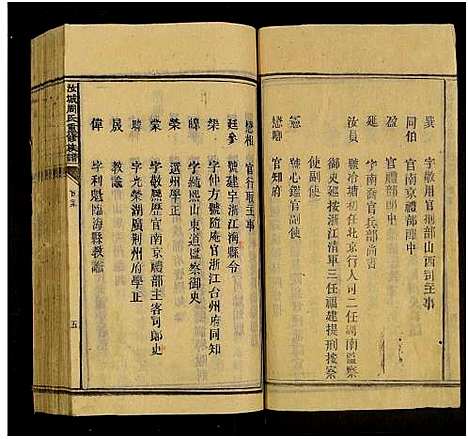 巽 字敬用官刑部山西司主事
同伯 官南京禮部郎中
盈 官禮部郎中
延 字南喬官兵部尚書
汝員 號冶塘初任北京行人司二任雲南監察
御史延按浙江清軍三任福建提刑按察
使副使
憲 號心鑑官副使
懋卿 官知府
懋相 官行取主事
廷參 號建宇浙江海縣令
榘 字仲方號隨庵官浙江台州府同知
暐 字純熙山東道監察御史
榮 選州學正
棠 字敬熙歷官南京禮部主客司郎史
暐 字光榮湖廣荆州府學正
晟 教諭
偉 字利魁臨海縣教諭
汝城周氏重修族譜
五